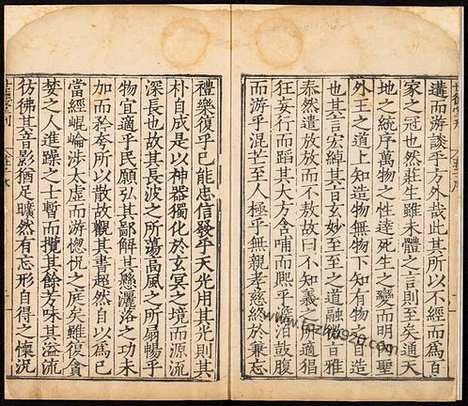 遘而游談乎方外哉此其所以不經而爲百
家之冠也然莊生雖未體之言則至矣通天
地之統序萬物之性達死生之變而明內聖
外王之道上知造物無物下知有物之自造
也其言宏綽其旨玄妙至至之道融微旨雅
泰然遣放放而不敖故曰不知義之所適猖
狂妄行而蹈其大方含哺而熙乎澹泊鼓腹
而游乎混芒至人極乎無親孝慈終於兼忘
禮樂復乎已能忠信發乎天光用其光則其
朴自成是以神器獨化於玄冥之境而源流
深長也故其長波之所蕩高風之所扇暢乎
物宜適乎民願弘其鄙解其懸灑落之功未
加而矜夸所以散故觀其書超然自以爲已
當經崐崘涉太虛而游惚怳之庭矣雖復貪
婪之人進躁之士暫而攬其餘芳味其溢流
彷彿其音影猶足曠然有忘形自得之懷況